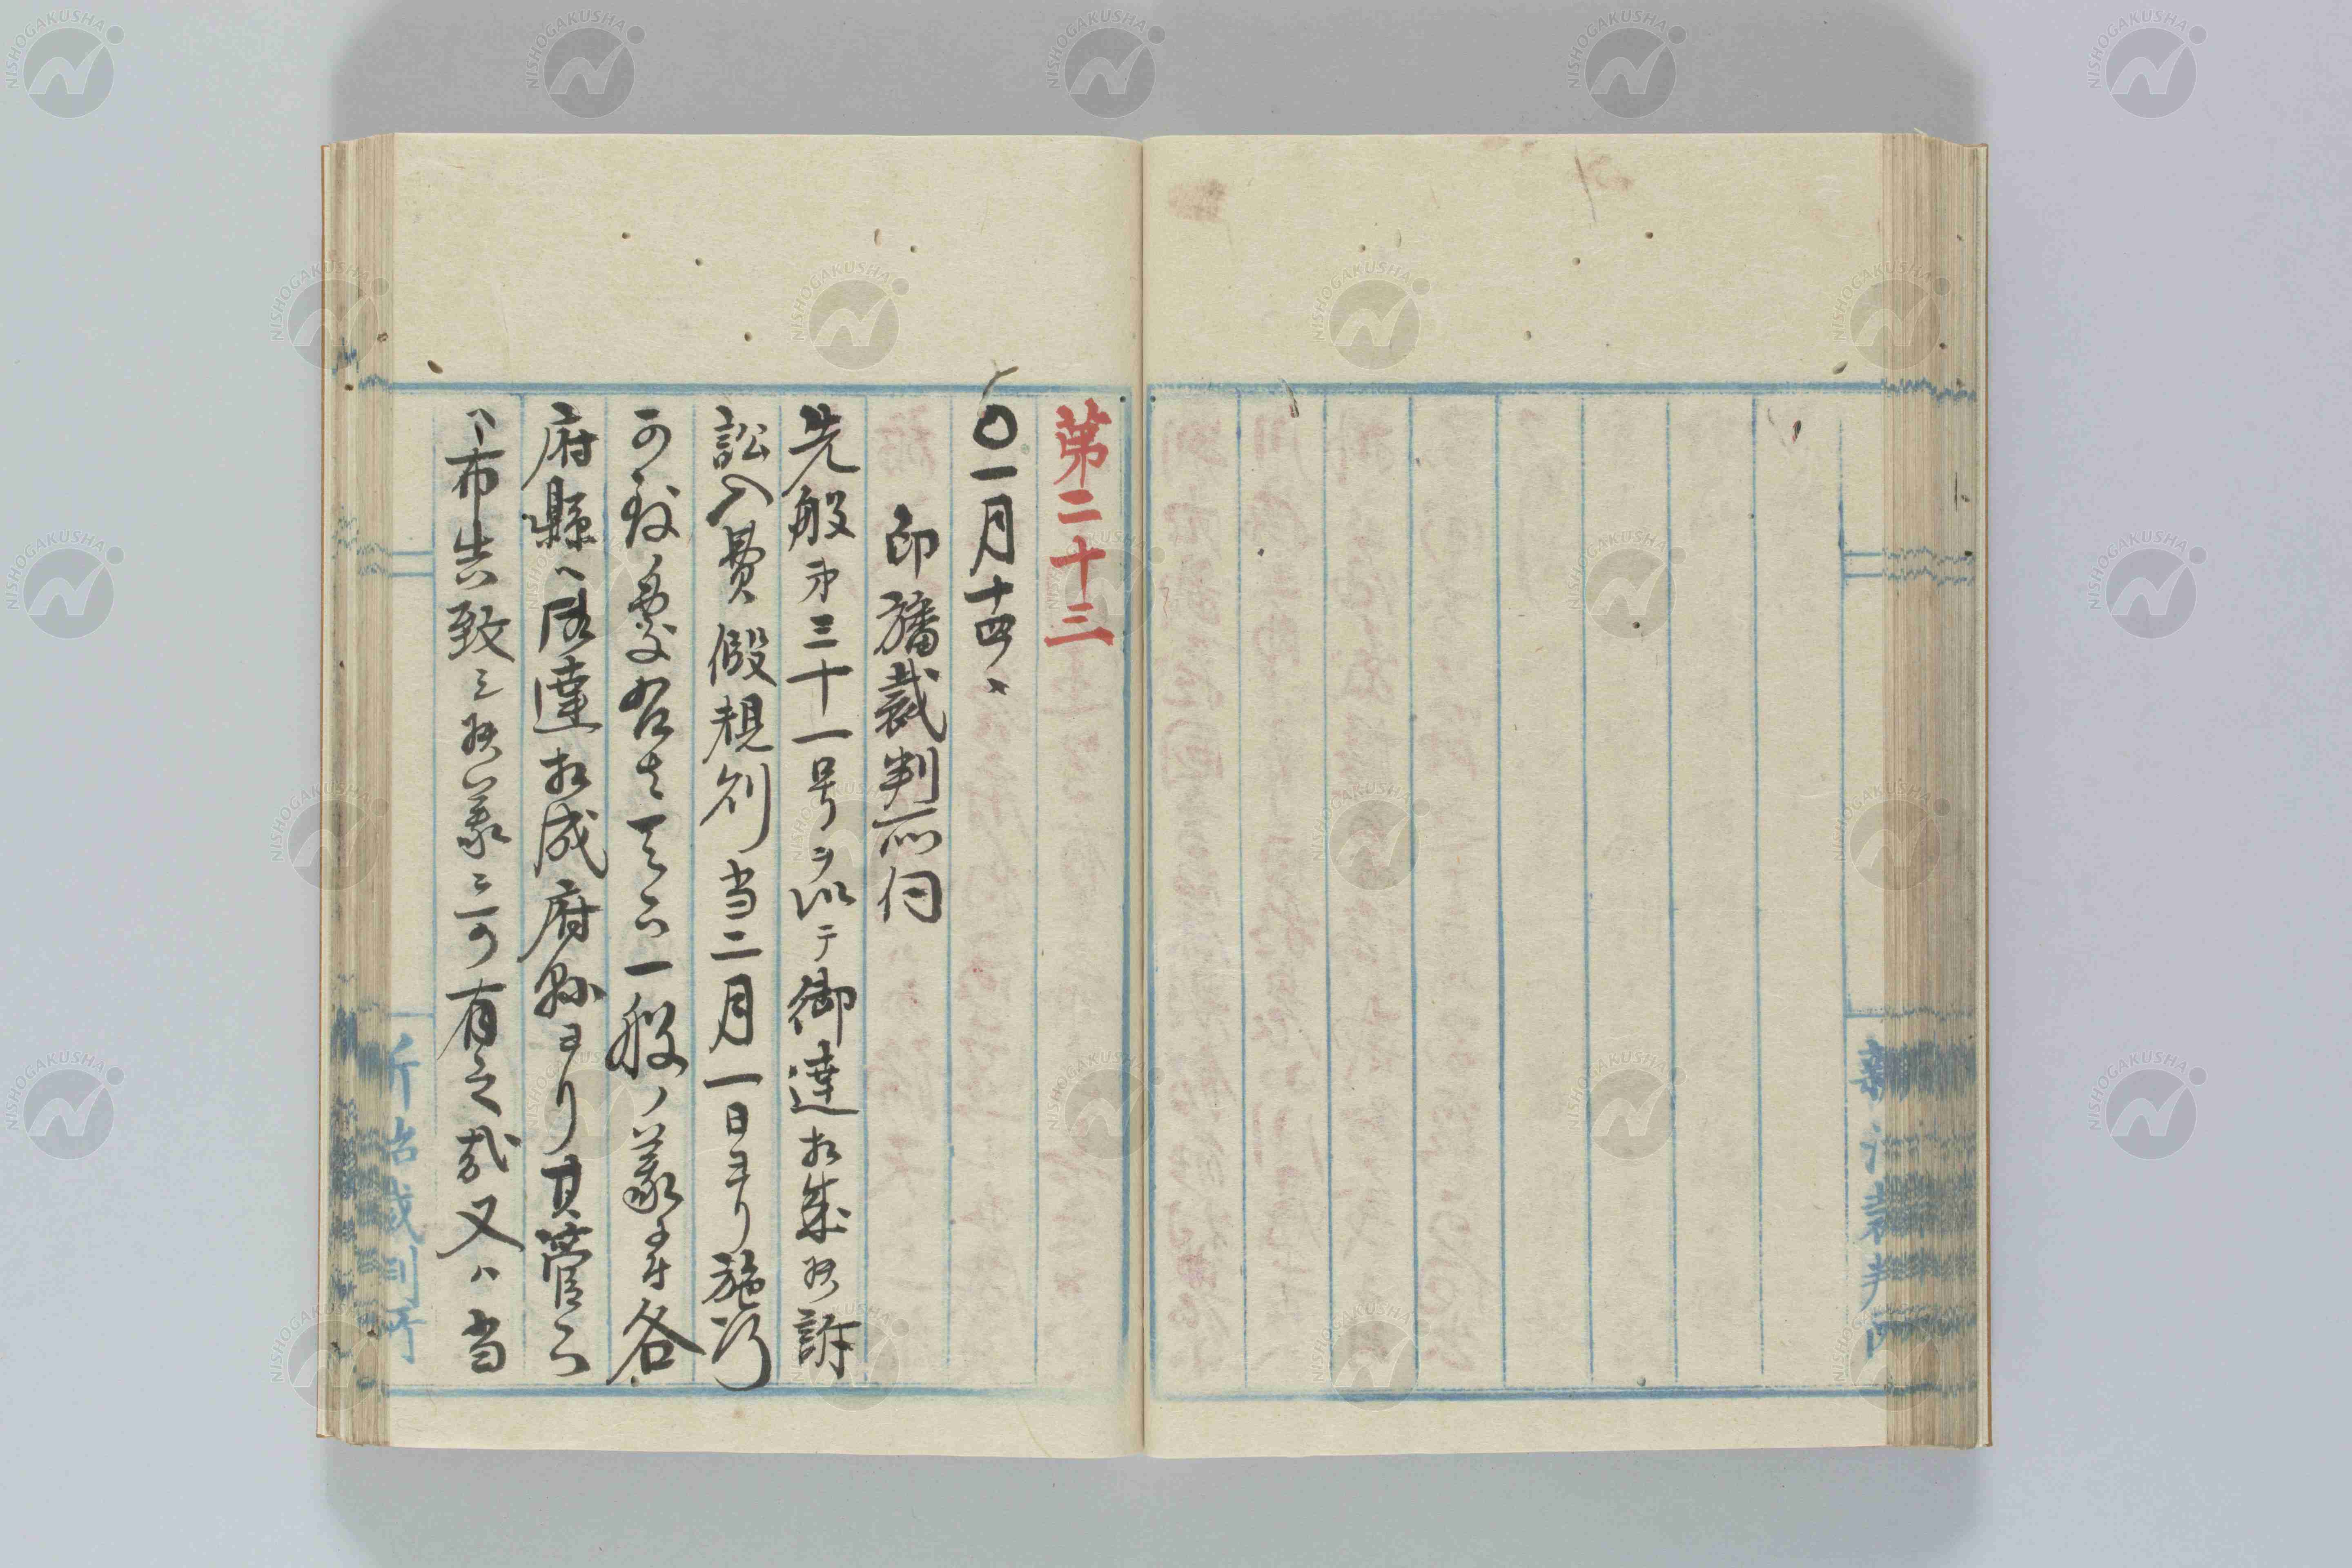 第二十三
〇一月十四、
印旛裁判所伺
先般第三十一号ヲ以テ御達相成候訴
訟入費假規則当二月一日ヨリ施行
可致ノ處右者一般ノ義ニ付各
府縣ヘ御達相成府縣ヨリ其管下
ヘ布告致シ候義ニ可有之哉又ハ当
新治裁判所
NISHOGAKUSHA